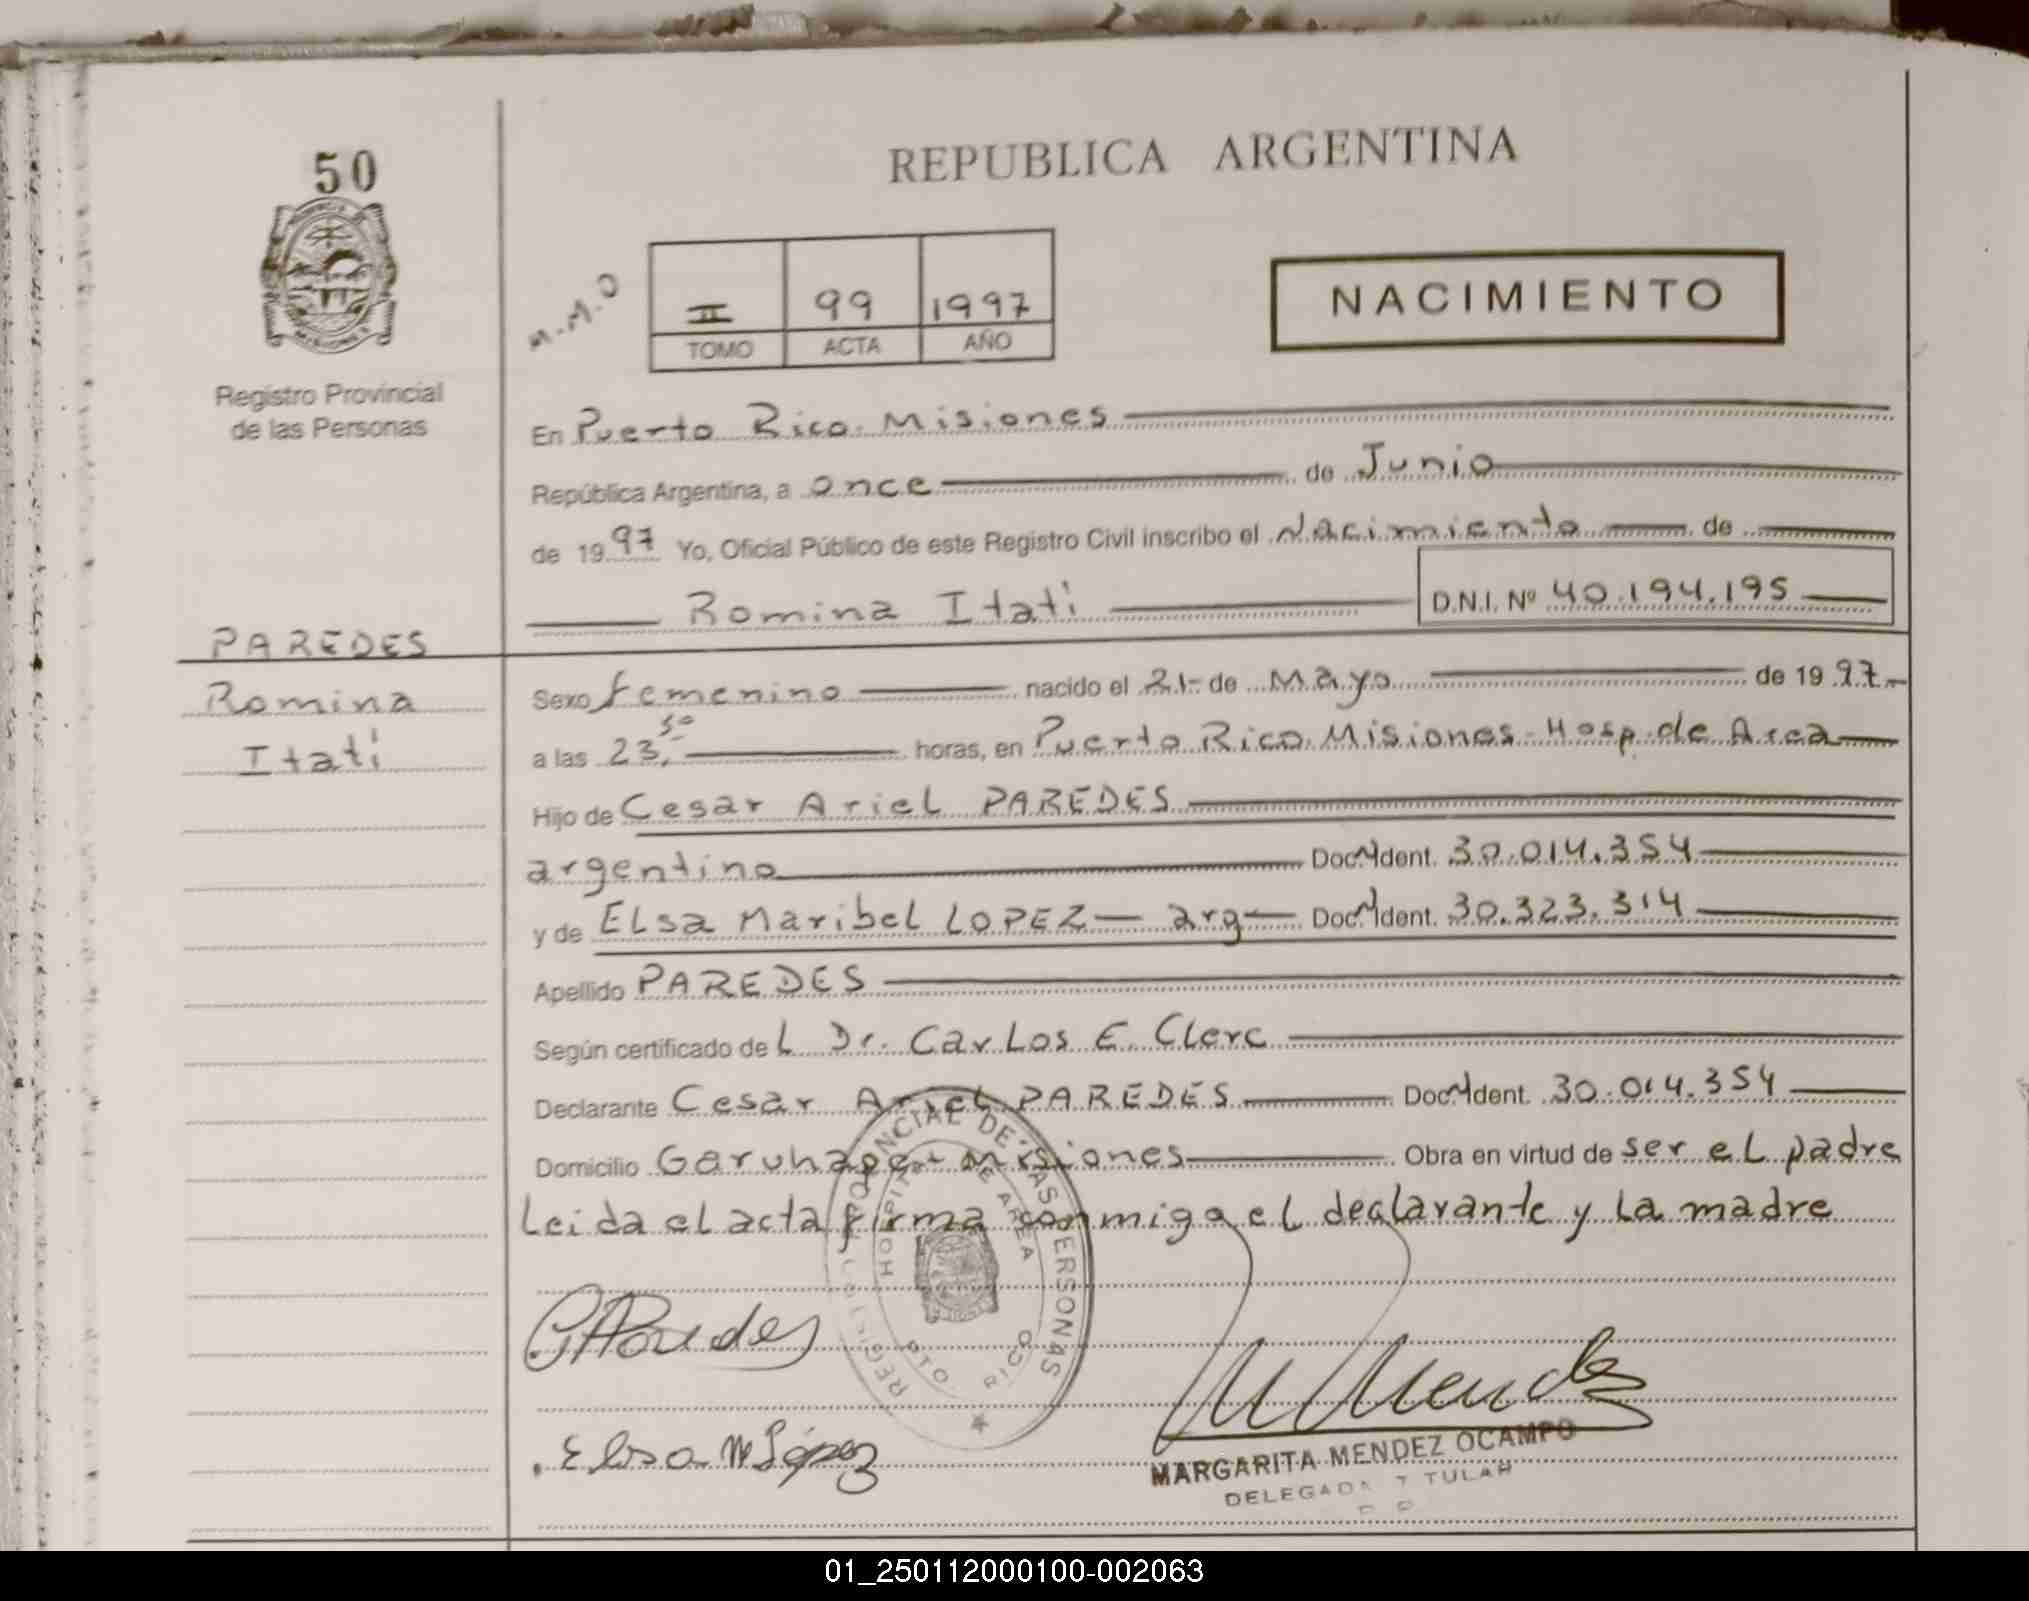 50
REPUBLICA ARGENTINA
M.M.O
II 99 1997
TOMO ACTA AÑO
NACIMIENTO
Registro Provincial
de las Personas
En Puerto Rico. Misiones
República Argentina, a once de Junio
de 1997 Yo, Oficial Público de este Registro Civil inscribo el Nacimiento de
Romina Itatí D.N.I. Nº 40.194.195
PAREDES
Romina
Itatí
Sexo femenino nacido el 21 de Mayo de 1997
a las 23,50 horas, en Puerto Rico. Misiones - Hosp. de Area
Hijo de Cesar Ariel PAREDES
argentino Doc. Ident. 30.014.354
y de ELsa Maribel LOPEZ - arg - Doc. Ident. 30.323.314
Apellido PAREDES
Según certificado del Dr. CarLos E. Clerc
Declarante Cesar Ariel PAREDES Doc. Ident. 30.014.354
Domicilio Garuhape - Misiones Obra en virtud de ser eL padre
Leida el acta firma conmigo el declarante y La madre
REGISTRO PROVINCIAL DE LAS PERSONAS
HOSPITAL DE AREA
PTO RICO
CAParedes
Elsa M López
M Mendez
MARGARITA MENDEZ OCAMPO
DELEGADA TITULAR
01_250112000100-002063